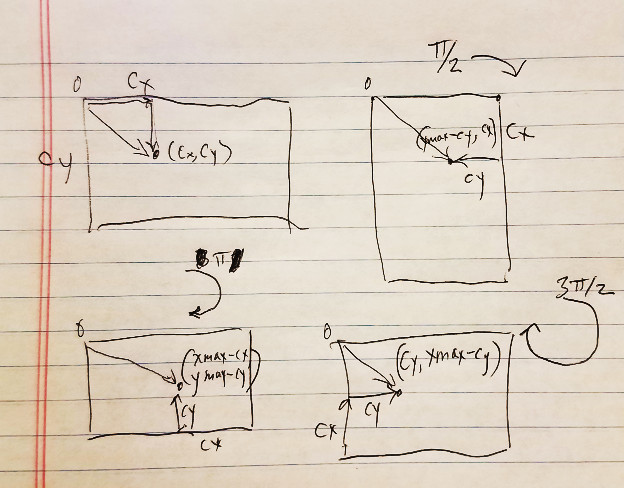 0 Cx
Cy
(Cx, Cy)
π/2
0
(ymax-Cy, Cx) Cx
Cy
π
0
(xmax-Cx
ymax-Cy)
Cy
Cx
3π/2
0
(Cy, Xmax-Cy)
Cx Cy